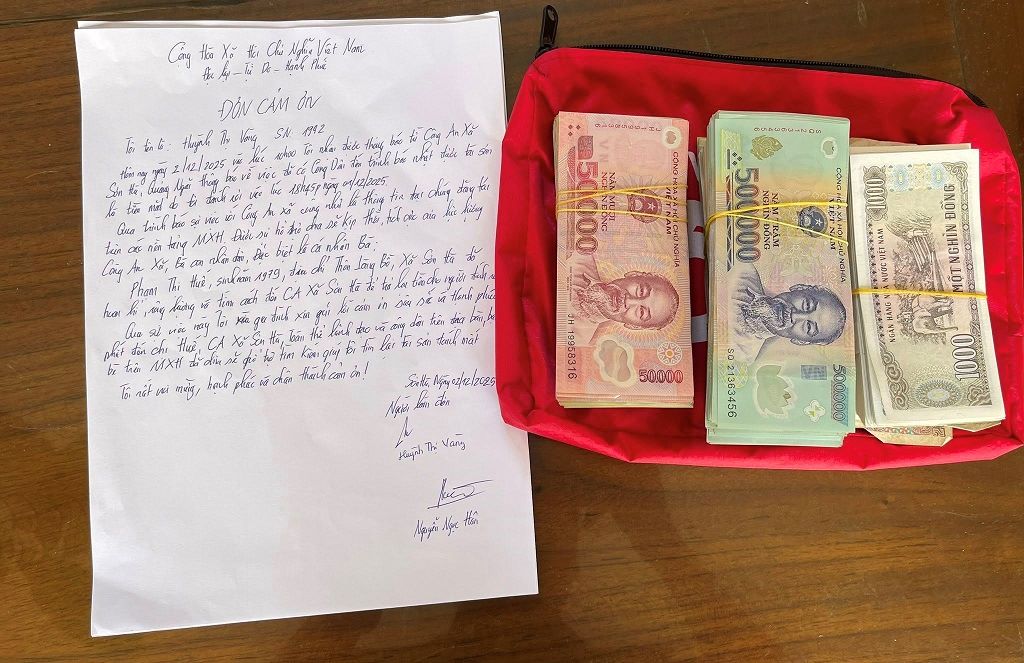 Cộng Hòa Xã Hội Chủ Nghĩa Việt Nam
Độc lập - Tự Do - Hạnh Phúc
ĐƠN CẢM ƠN
Tôi tên là: Huỳnh Thị Vàng, SN: 1992
Hôm nay ngày 2/12/2025 vào lúc Tôi nhận được thông báo từ Công An Xã
Sơn Hà, Quảng Ngãi thông báo về việc đã có Công Dân đến trình báo nhặt được tài sản
là tiền mặt do tôi đánh rơi vào lúc 18h45p ngày /12/2025.
Qua trình báo sự việc với Công An xã cũng như là thông tin đại chúng đăng tải
trên các nền tảng MXH. Được sự hỗ trợ chia sẻ kịp thời, tích cực của lực lượng
Công An Xã, Bà con nhân dân, Đặc biệt là cá nhân Bà:
Phạm Thị Thuê, sinh năm 1979, địa chỉ Thôn Làng Bồ, Xã Sơn Hà đã
và tìm cách đến CA Xã Sơn Hà để trả lại tiền cho người đánh rơi
Qua sự việc này Tôi xin gửi lời cảm ơn sâu sắc và hạnh phúc
đến chị Thuê, CA Xã Sơn Hà, bàn thể lãnh đạo và công dân trên địa bàn, bạn
bè trên MXH đã chia sẻ giúp đỡ tìm kiếm giúp tôi tìm lại tài sản đánh mất
Tôi rất vui mừng, hạnh phúc và chân thành cảm ơn!
Sơn Hà, Ngày 02/12/2025
Người làm đơn
Huỳnh Thị Vàng
Nguyễn Ngọc Hân
JH 19958316
50000
NĂM MƯƠI
NGHÌN ĐỒNG
CỘNG HÒA XÃ HỘI CHỦ NGHĨA
VIỆT NAM
VN
JH 19958316
50.000
SQ 21363456
500000
NĂM TRĂM
NGHÌN ĐỒNG
CỘNG HÒA XÃ HỘI CHỦ NGHĨA
VIỆT NAM
SQ 21363456
500000
1000
NGÂN HÀNG NHÀ NƯỚC VIỆT NAM
MỘT NGHÌN ĐỒNG
1000